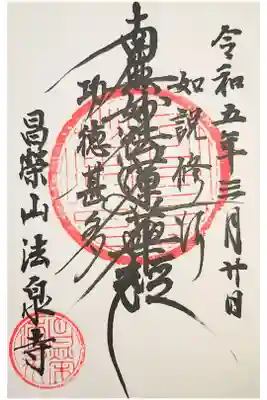 令和五年三月廿日
如説修行
南無妙法蓮華経
功徳甚多
昌榮山法泉寺